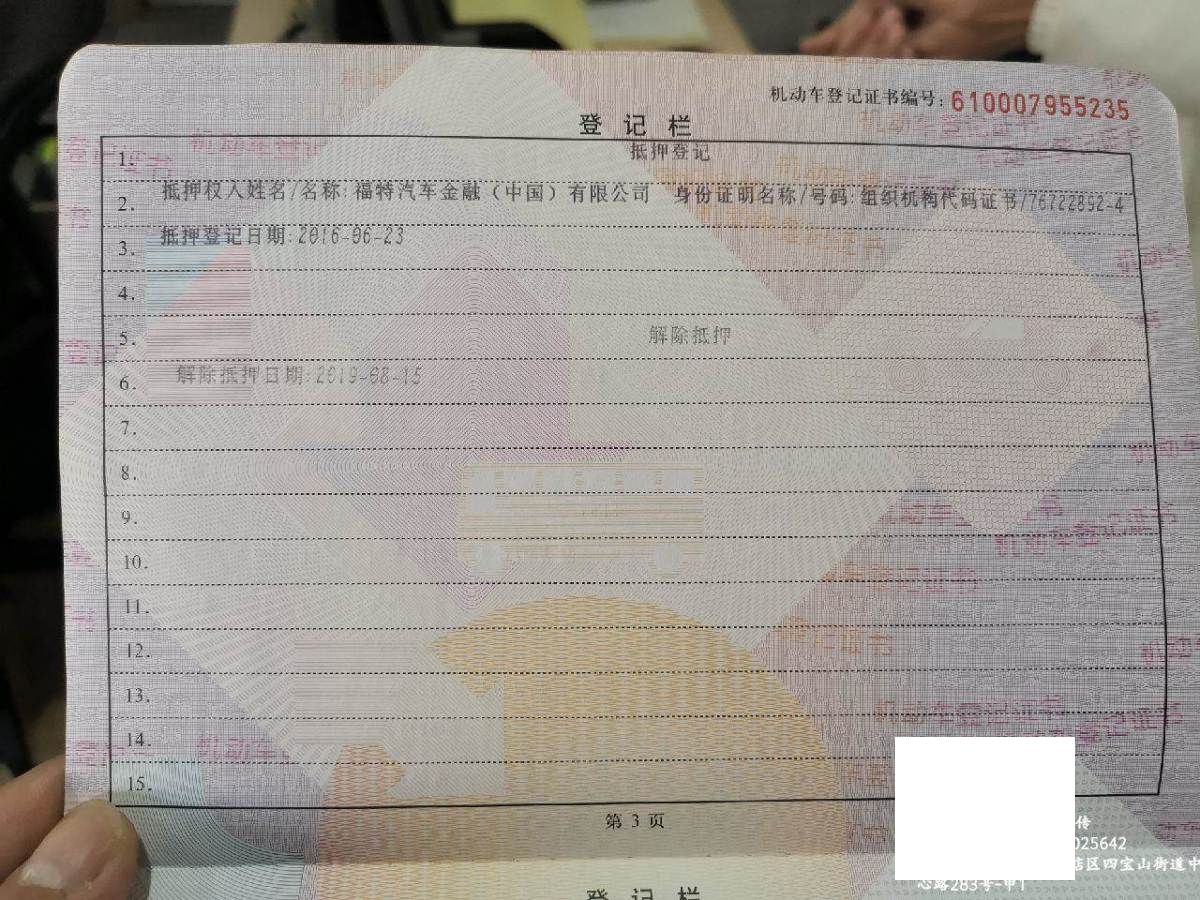 机动车登记证书编号:610007955235
登记栏
1. 抵押登记
2. 抵押权人姓名/名称:福特汽车金融（中国）有限公司 身份证明名称/号码:组织机构代码证书/76722892-4
3. 抵押登记日期:2016-06-23
4.
5. 解除抵押
6. 解除抵押日期:2019-08-15
7.
8.
9.
10.
11.
12.
13.
14.
15.
第 3 页
传
025642
店区四宝山街道中
心路283号-甲1
登记栏